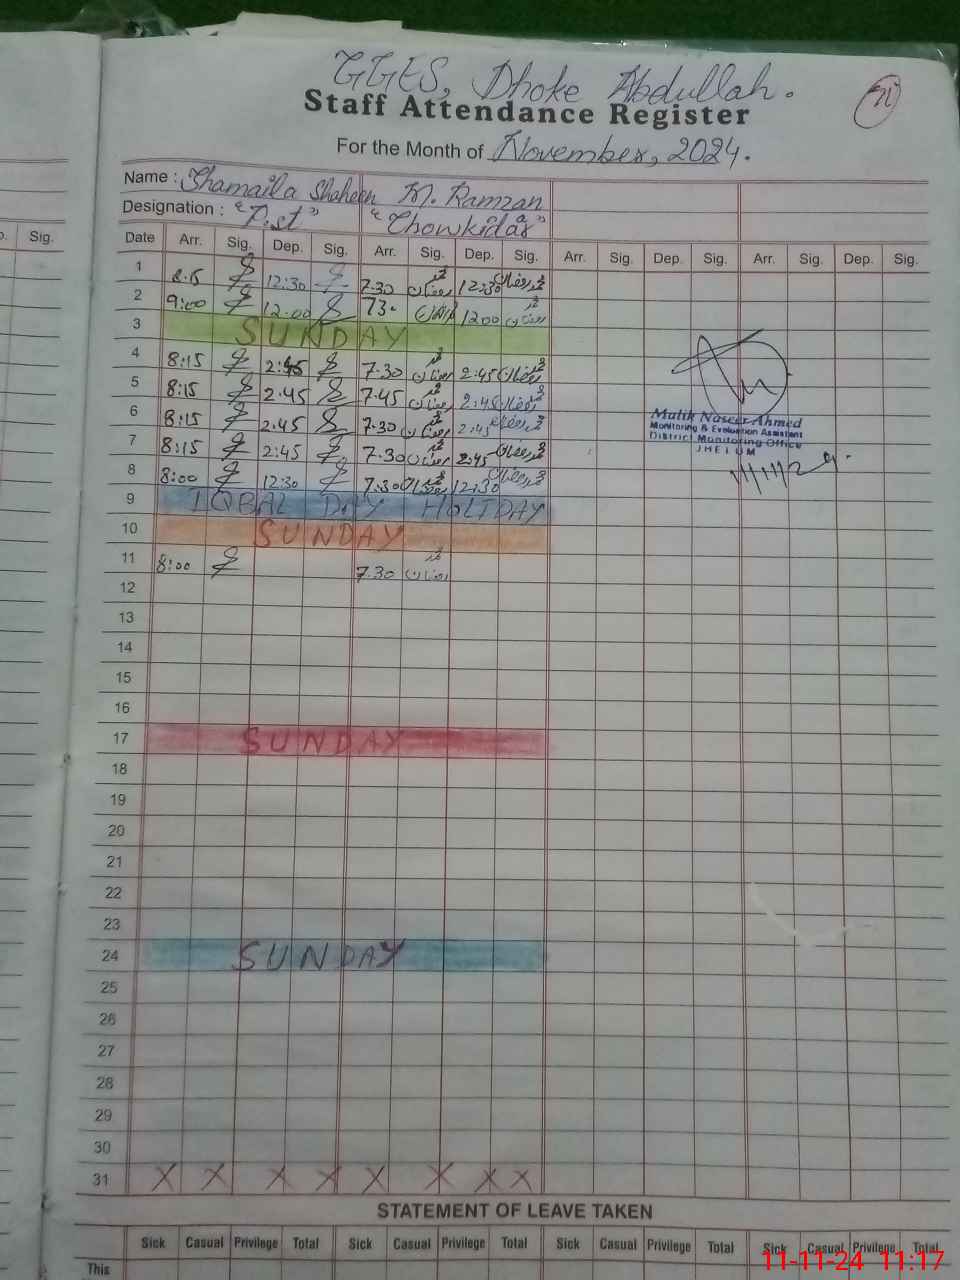 GGES, Dhoke Abdullah.
Staff Attendance Register
For the Month of November, 2024.
Name : Shamaila Shaheen M. Ramzan
Designation : "P.st" "Chowkidar"
Sig.
Date Arr. Sig. Dep. Sig. Arr. Sig. Dep. Sig. Arr. Sig. Dep. Sig. Arr. Sig. Dep. Sig.
1 8.15 12:30 7.30 محمد رمضان 12:30 محمد رمضان
2 9:00 12.00 730 رمضان 1200 محمد رمضان
3 SUNDAY
4 8:15 2:45 7.30 محمد رمضان 2:45 محمد رمضان
5 8:15 2.45 7.45 محمد رمضان 2:45 محمد رمضان
6 8:15 2.45 7.30 محمد رمضان 2:45 محمد رمضان
7 8:15 2:45 7.30 محمد رمضان 2:45 محمد رمضان
8 8:00 12:30 7:30 محمد رمضان 12:30 محمد رمضان
Malik Naseer Ahmed
Monitoring & Evaluation Assistant
District Monitoring Office
JHELUM
11/11/24.
9 IQBAL DAY HOLIDAY
10 SUNDAY
11 8:00 7.30 محمد رمضان
12
13
14
15
16
17 SUNDAY
18
19
20
21
22
23
24 SUNDAY
25
26
27
28
29
30
31 X X X X X X X X
STATEMENT OF LEAVE TAKEN
Sick Casual Privilege Total Sick Casual Privilege Total Sick Casual Privilege Total Sick Casual Privilege Total
This
11-11-24 11:17